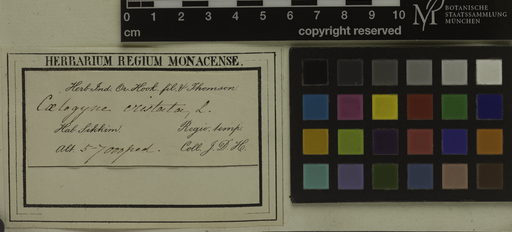 0 1 2 3 4 5 6 7 8 9 10
cm
copyright reserved
BOTANISCHE
STAATSSAMMLUNG
MÜNCHEN
HERBARIUM REGIUM MONACENSE.
Herb. Ind. Or. Hook. fil. & Thomson
Cœlogyne cristata, L.
Hab. Sikkim. Regio. temp.
Alt. 5-7000 ped. Coll. J. D. H.